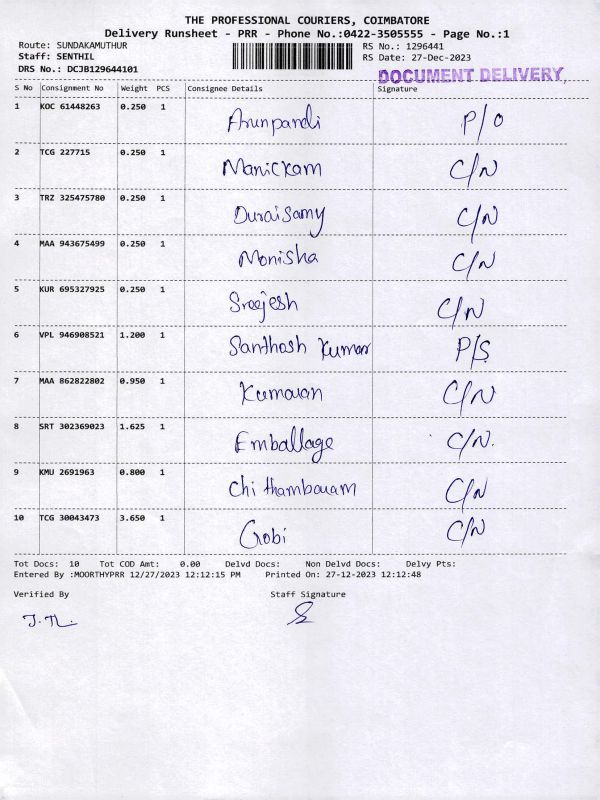 THE PROFESSIONAL COURIERS, COIMBATORE
Delivery Runsheet - PRR - Phone No.:0422-3505555 - Page No.:1
Route: SUNDAKAMUTHUR RS No.: 1296441
Staff: SENTHIL RS Date: 27-Dec-2023
DRS No.: DCJB129644101
DOCUMENT DELIVERY,
S No Consignment No Weight PCS Consignee Details Signature
1 KOC 61448263 0.250 1 Arunpandi P/O
2 TCG 227715 0.250 1 Manickam C/N
3 TRZ 325475780 0.250 1 Duraisamy C/N
4 MAA 943675499 0.250 1 Monisha C/N
5 KUR 695327925 0.250 1 Sreejesh C/N
6 VPL 946908521 1.200 1 Santhosh Kumar P/S
7 MAA 862822802 0.950 1 Kumaran C/N
8 SRT 302369023 1.625 1 Emballage C/N.
9 KMU 2691963 0.800 1 Chithambaram C/N
10 TCG 30043473 3.650 1 Gobi C/N
Tot Docs: 10 Tot COD Amt: 0.00 Delvd Docs: Non Delvd Docs: Delvy Pts:
Entered By :MOORTHYPRR 12/27/2023 12:12:15 PM Printed On: 27-12-2023 12:12:48
Verified By Staff Signature